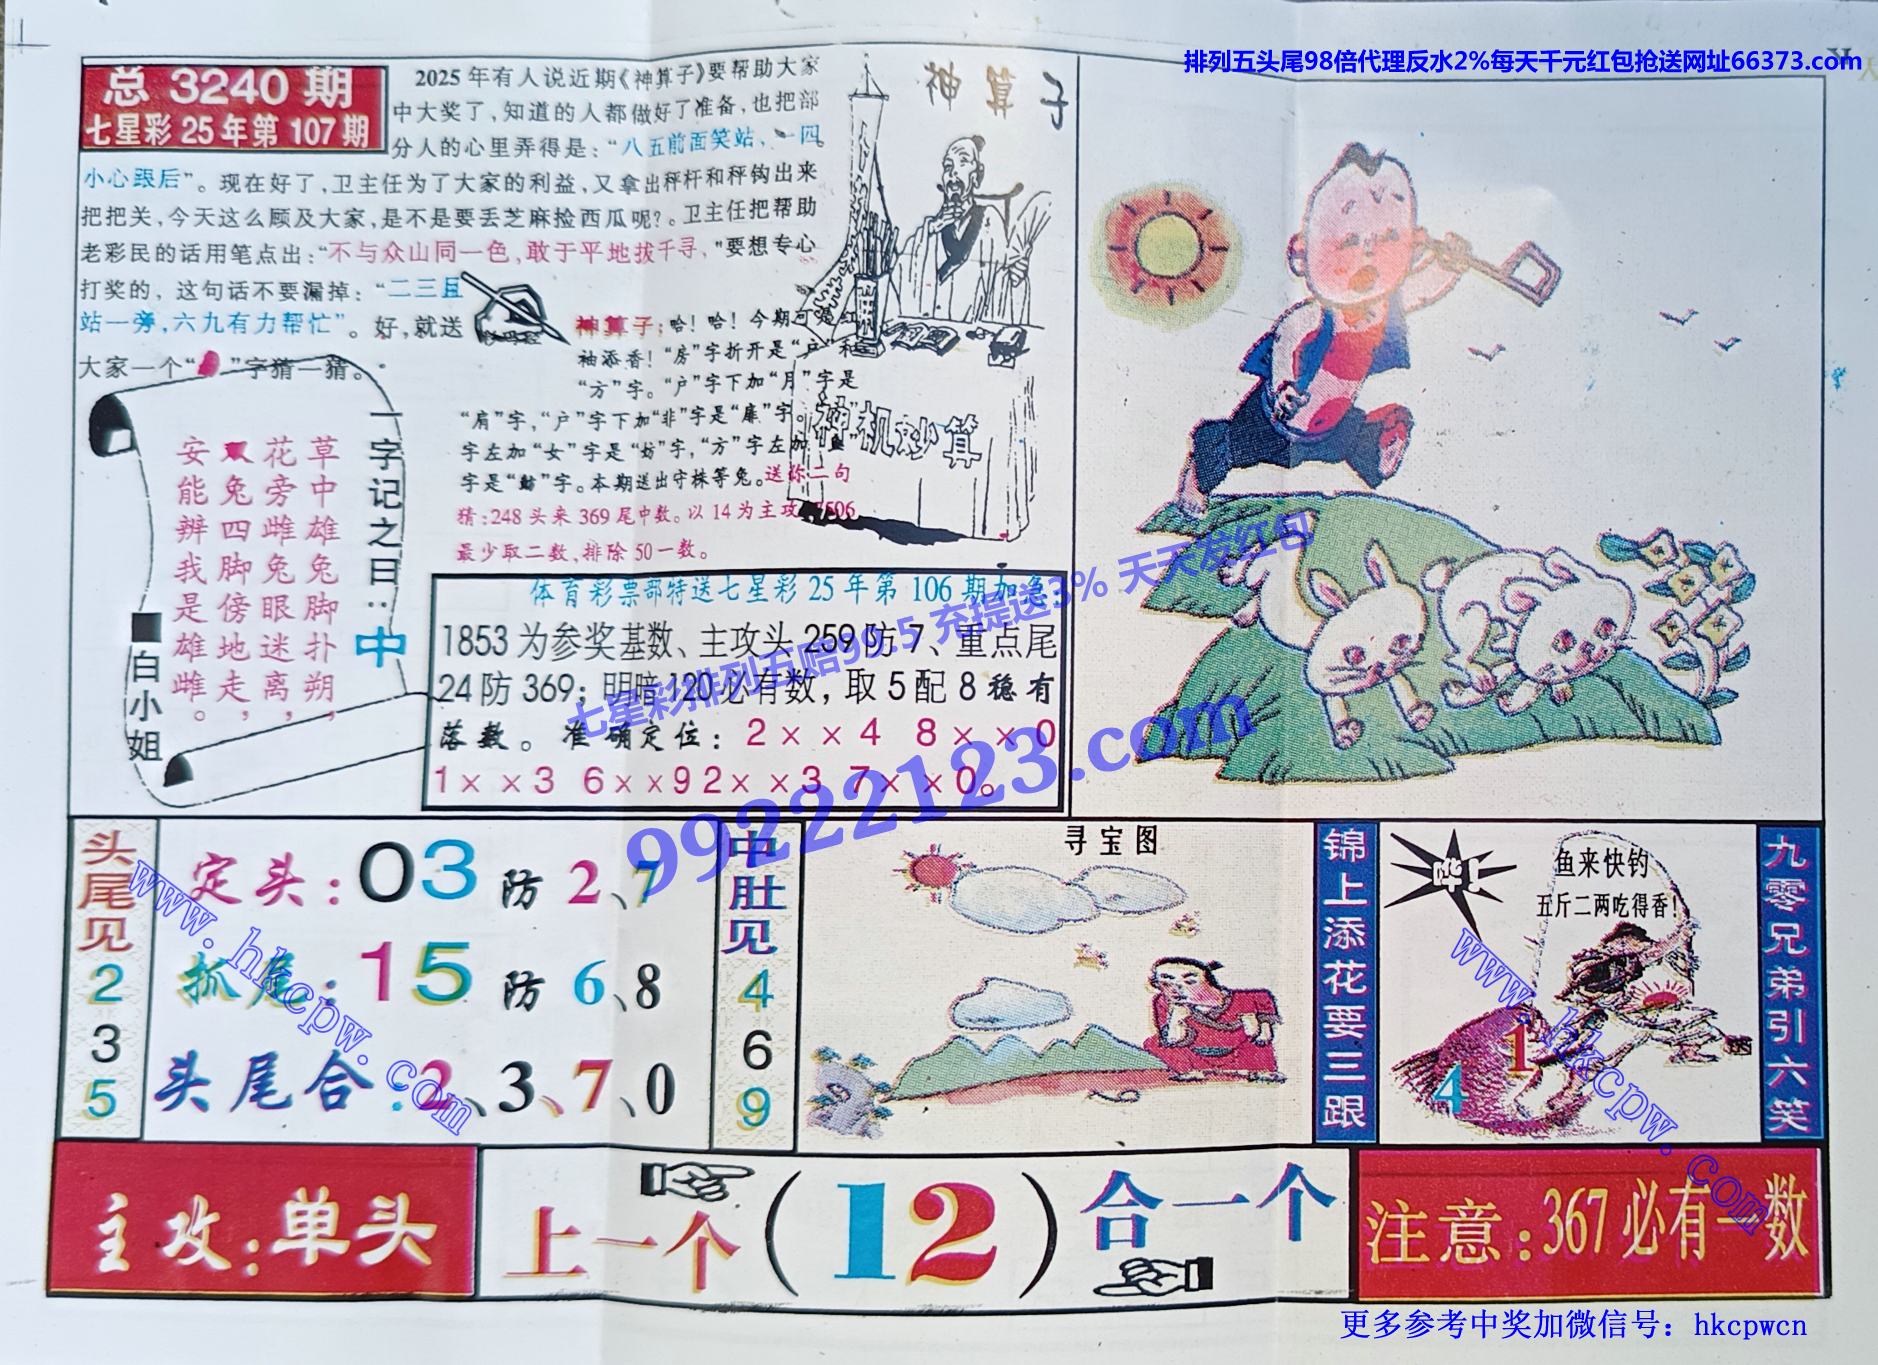 排列五头尾98倍代理反水2%每天千元红包抢送网址66373.com
总 3240 期
七星彩 25 年第 107 期
2025 年有人说近期《神算子》要帮助大家
中大奖了，知道的人都做好了准备，也把部
分人的心里弄得是：“八五前面笑站、一四
小心跟后”。现在好了，卫主任为了大家的利益，又拿出秤杆和秤钩出来
把把关，今天这么顾及大家，是不是要丢芝麻捡西瓜呢?。卫主任把帮助
老彩民的话用笔点出：“不与众山同一色，敢于平地拔千寻，”要想专心
打奖的，这句话不要漏掉：“二三且
站一旁，六九有力帮忙”。好，就送
大家一个“ ”字猜一猜。
神 算 子
神算子：哈！哈！今期可是红
袖添香！“房”字折开是“户”和
“方”字。“户”字下加“月”字是
“肩”字，“户”字下加“非”字是“扉”字。
字左加“女”字是“妨”字，“方”字左加“鱼”
字是“鲂”字。本期送出守株等兔。送你二句
猜：248 头来 369 尾中数。以 14 为主攻 7506
最少取二数，排除 50 一数。
神机妙算
一字记之曰：中
草中雄兔脚扑朔，
花旁雌兔眼迷离，
双兔四脚傍地走，
安能辨我是雄雌。
■白小姐
体育彩票部特送七星彩 25 年第 106 期加急：
1853 为参奖基数、主攻头 259 防 7、重点尾
24 防 369；明暗 120 必有数，取 5 配 8 稳有
落数。准确定位：2××4 8××0
1××3 6××9 2××3 7××0。
七星彩排列五赔99.5 充提送3% 天天发红包
99222123.com
头尾见
2
3
5
定头：03 防 2、7
抓尾：15 防 6、8
头尾合：2、3、7、0
中肚见
4
6
9
寻宝图
锦上添花要三跟
鱼来快钓
五斤二两吃得香！
1
4
九零兄弟引六笑
www.hkcpw.com
www.hkcpw.com
主攻：单头
上一个（12）合一个
注意：367 必有一数
更多参考中奖加微信号：hkcpwcn